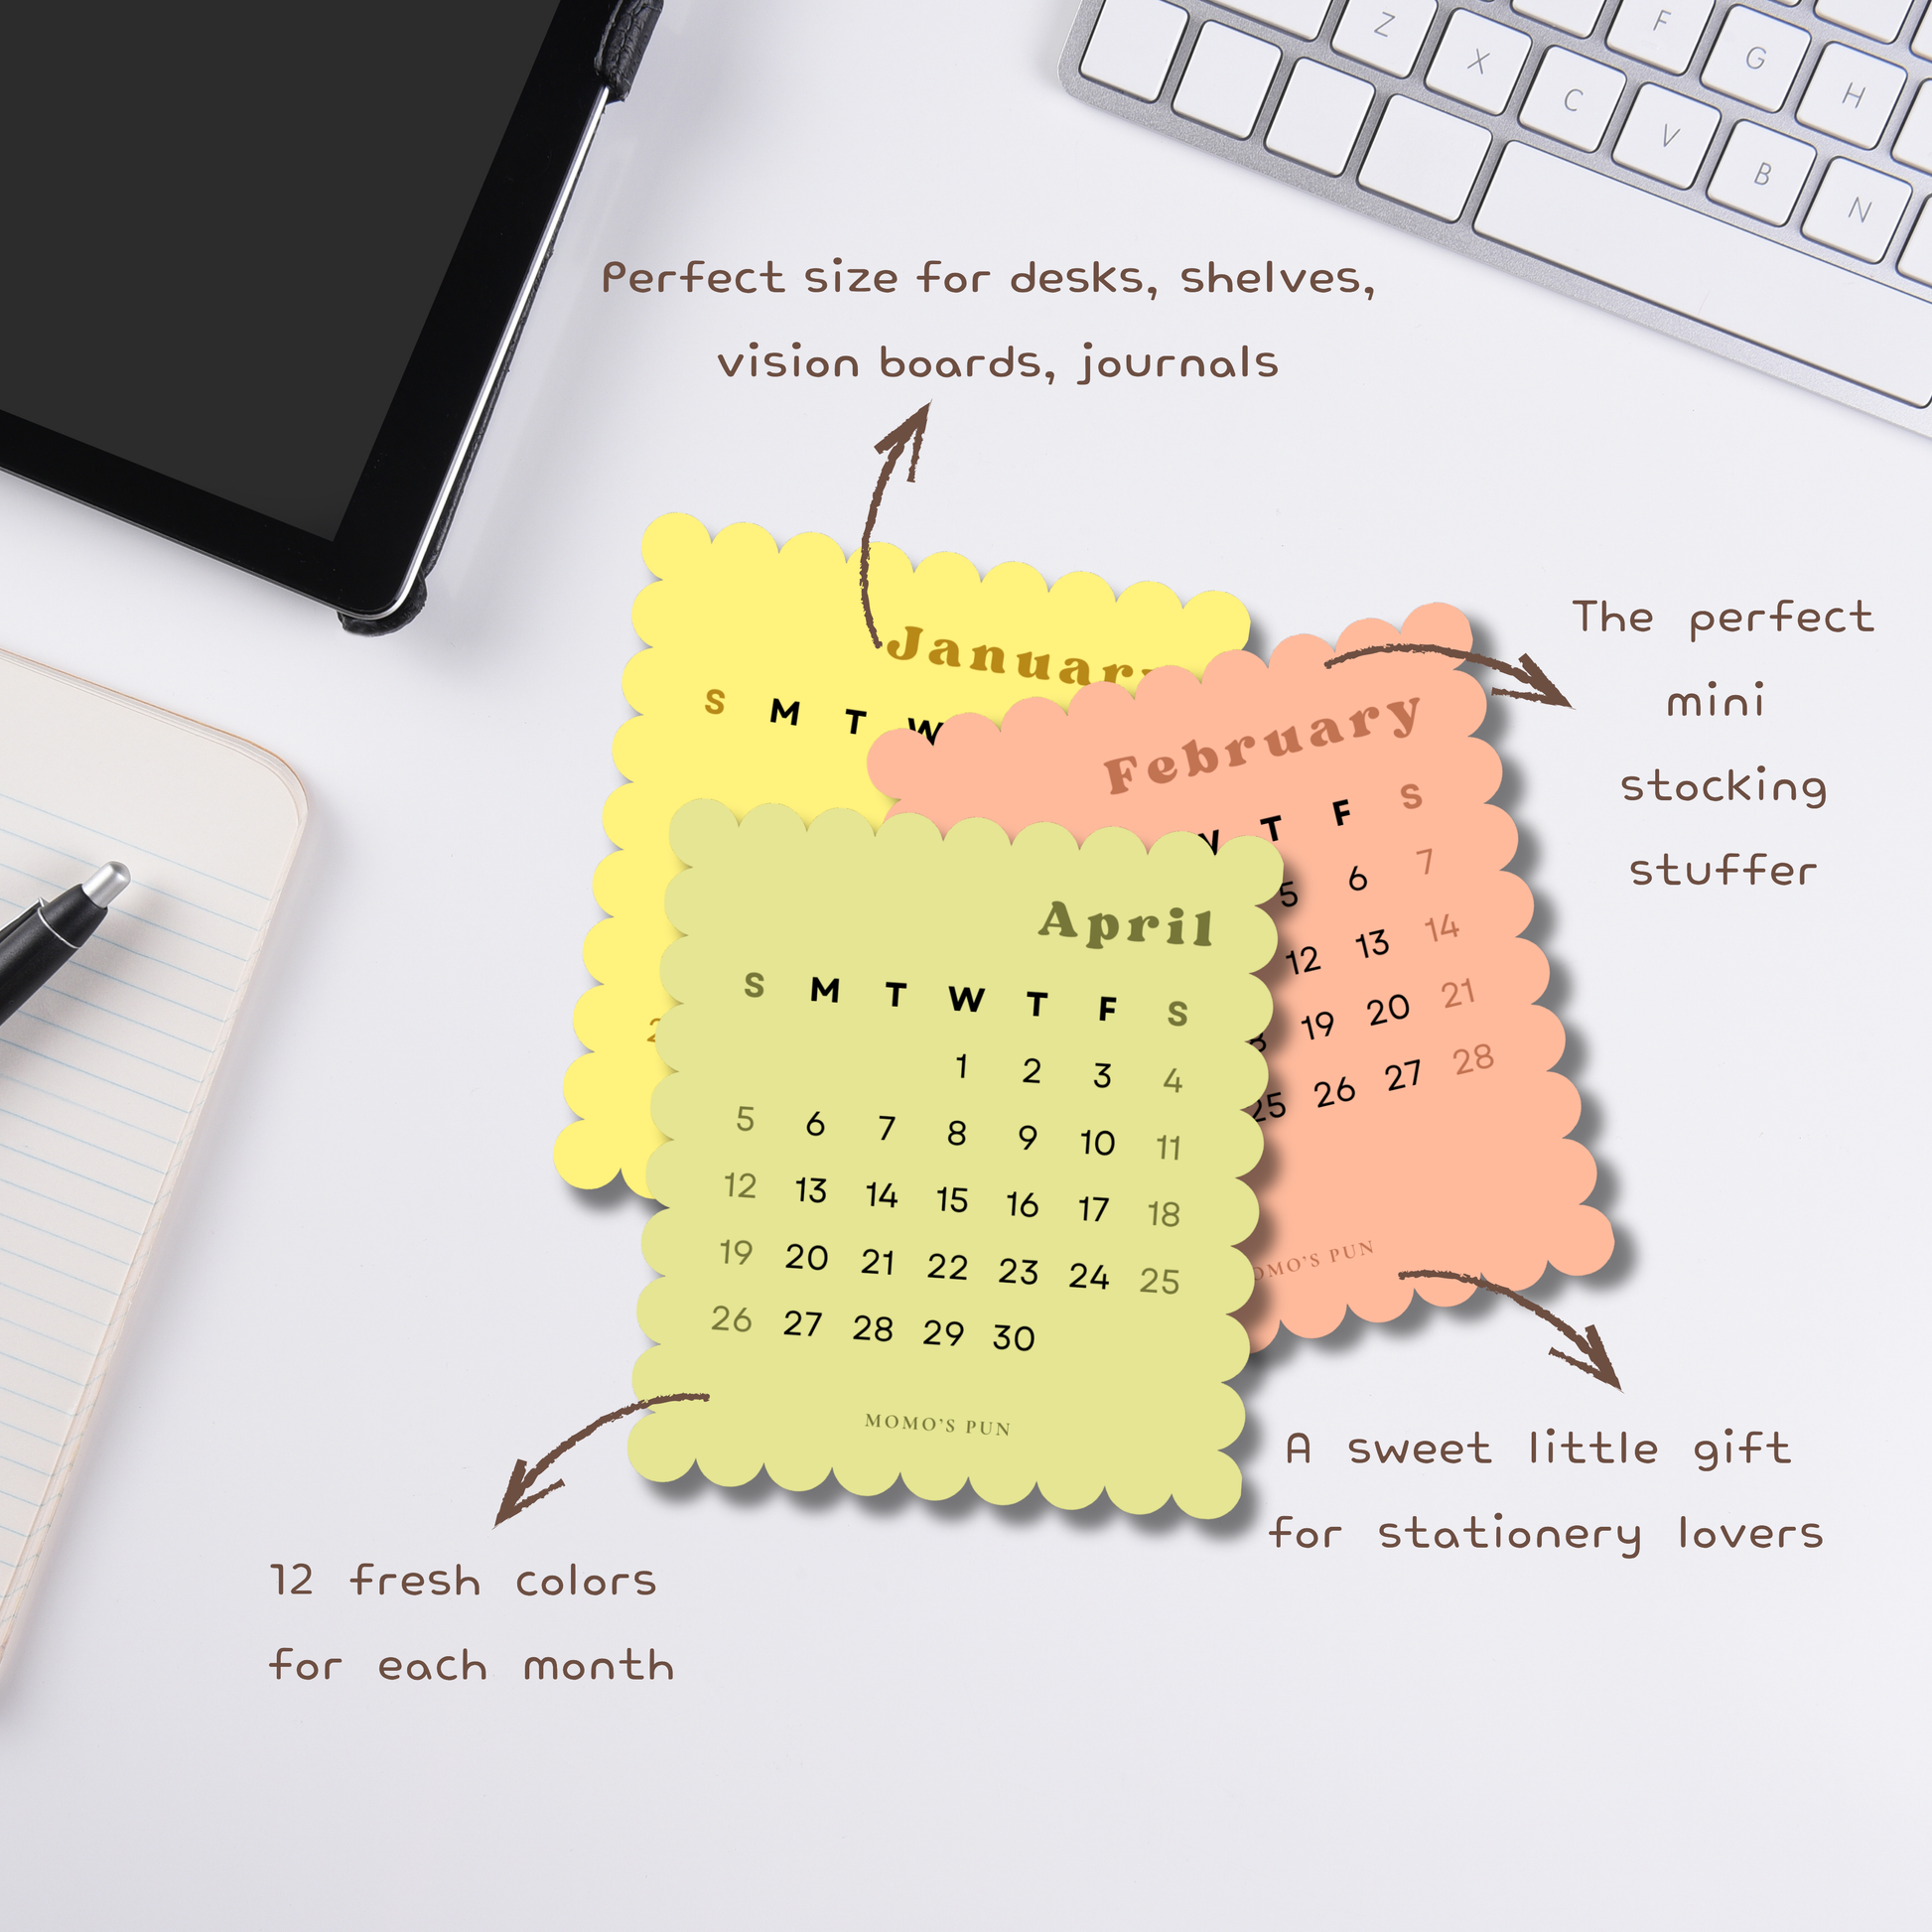 Z X C V B N F G H
Perfect size for desks, shelves,
vision boards, journals
January
S M T W
February
T F S
5 6 7
12 13 14
19 20 21
25 26 27 28
April
S M T W T F S
1 2 3 4
5 6 7 8 9 10 11
12 13 14 15 16 17 18
19 20 21 22 23 24 25
26 27 28 29 30
MOMO'S PUN
MOMO'S PUN
The perfect
mini
stocking
stuffer
A sweet little gift
for stationery lovers
12 fresh colors
for each month